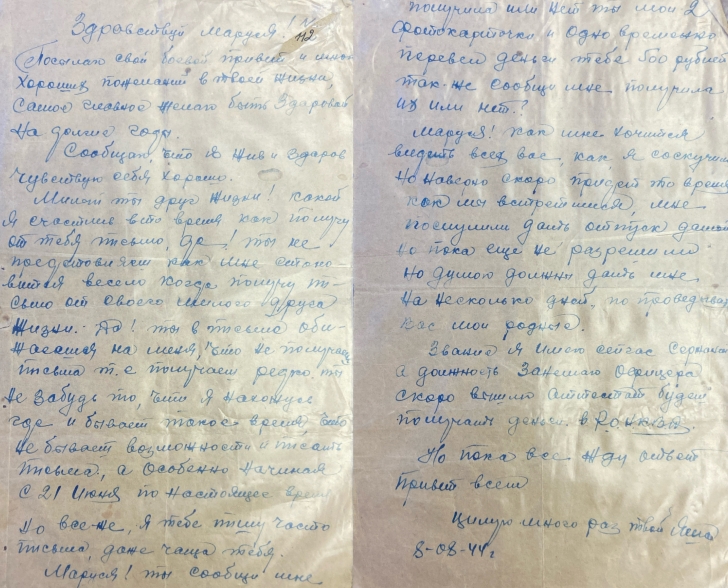 Здравствуй Маруся!
112
Посылаю свой боевой привет и много
Хороших пожеланий в твоей жизни,
Самое главное желаю быть Здаровай
На долгие годы.
Сообщаю, что я жив и здаров
Чувствую себя Хорошо.
Милой ты друг Жизни! Какой
Я счастлив в то время как получу
от тебя письмо, да! ты не
представляеш как мне стано
вится весело когда получу пи-
сьмо от своего милого друга
Жизни. Да! ты в письма оби-
жаешся на меня, что не получаеш
письма т.е получаеш редко. ты
Не Забудь то, что я нахожус
где и бывает такое время что
не бывает возможности и писать
письма, а особенно начиная
с 21 Июня по настоящее время
Но все-же, я тебе пишу часто
письма, даже чаще тебя.
Маруся! ты сообщи мне
получила или нет ты мои 2
фотокарточки и одно временно
перевел деньги тебе 500 рублей
так-же сообщи мне получила
их или нет?
Маруся! Как мне хочится
видеть всех вас, как я соскучил
Но наверно скоро придет то время
как мы встретимся, мне
посулили дать отпуск домой
но пока еще не разрешили
но думаю должны дать мне
на несколько дней, по проведовать
вас мои родные.
Звание я имею сейчас Сержанта
а должность Занемаю Офицера
скоро вышлю аттестат будеш
получать деньги в
Но пока все жду ответ
Привет всем
Цилую много раз твой
8-08-44 г